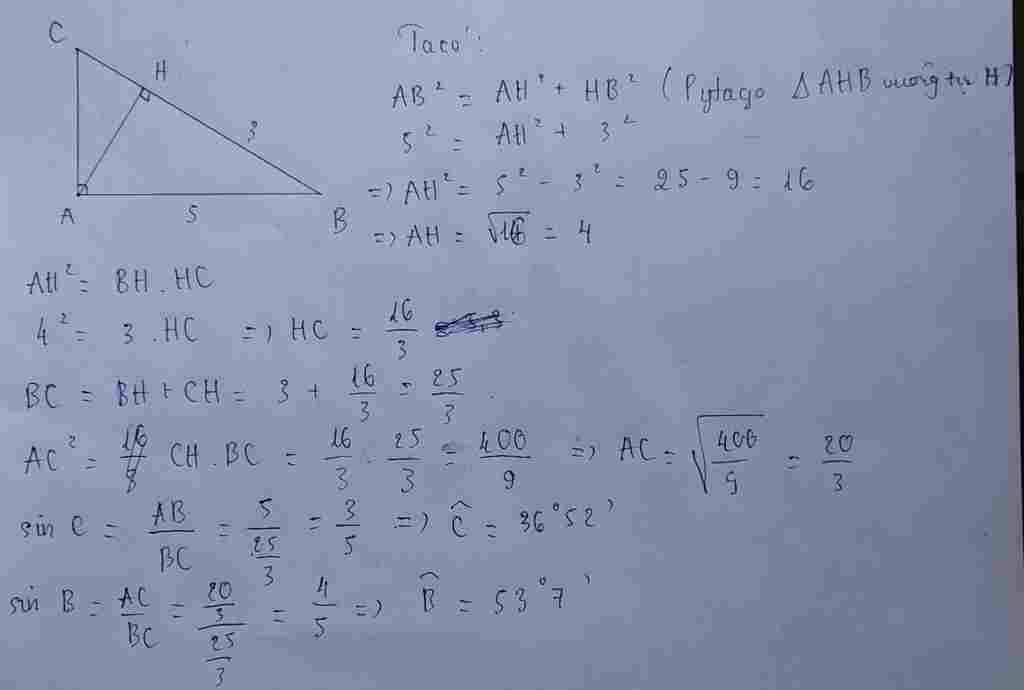 C
H
3
A
5
B
Ta có:
AB² = AH² + HB² (Pytago △AHB vuông tại H)
5² = AH² + 3²
=> AH² = 5² - 3² = 25 - 9 = 16
=> AH = √16 = 4
AH² = BH . HC
4² = 3 . HC => HC = 16/3
BC = BH + CH = 3 + 16/3 = 25/3 .
AC² = CH . BC = 16/3 . 25/3 = 400/9 => AC = √(400/9) = 20/3
sin C = AB/BC = 5/(25/3) = 3/5 => Ĉ = 36°52'
sin B = AC/BC = (20/3)/(25/3) = 4/5 => B̂ = 53°7'